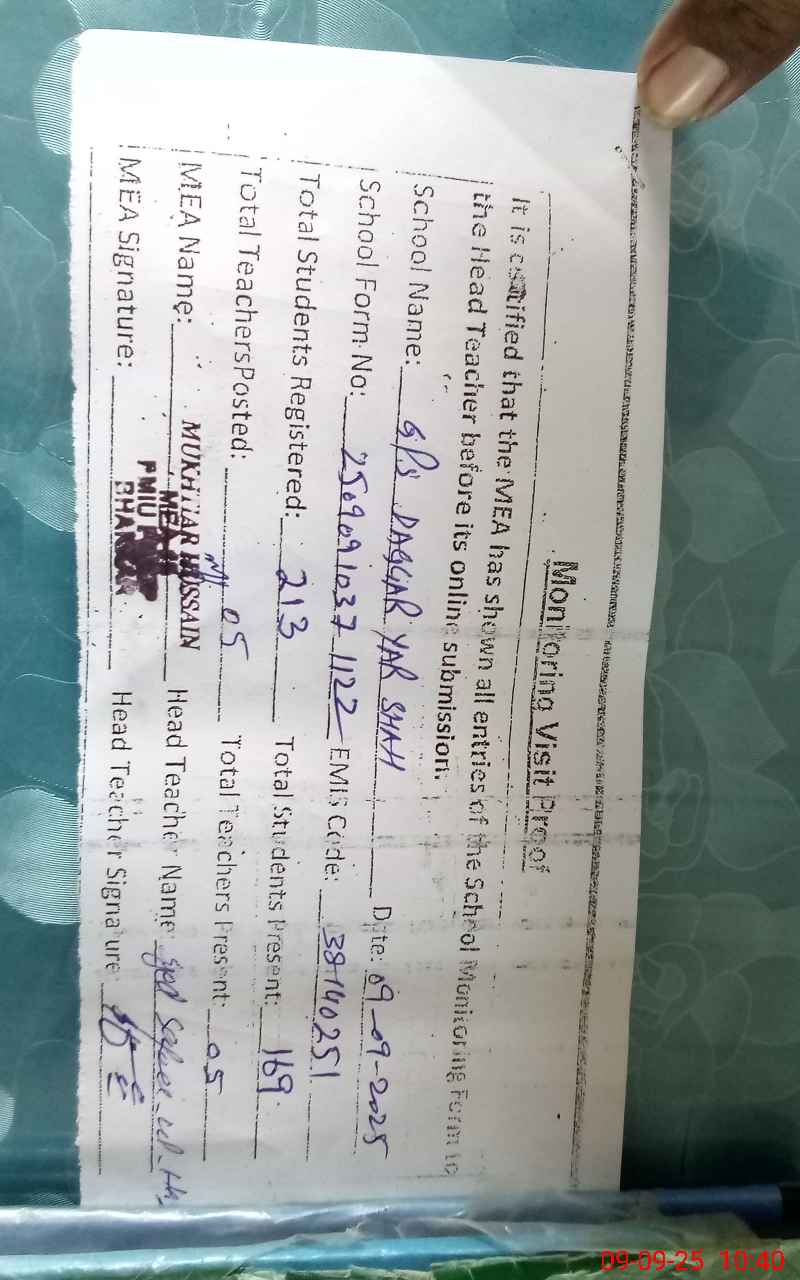 Monitoring Visit Proof
It is certified that the MEA has shown all entries of the School Monitoring Form to
the Head Teacher before its online submission.
School Name: GPS DAGGAR YAR SHAH Date: 09-09-2025
School Form No: 2509091037 1122 EMIS Code: 38140251
Total Students Registered: 213 Total Students Present: 169
Total Teachers Posted: 05 Total Teachers Present: 05
MEA Name: MUKHTIAR HUSSAIN Head Teacher Name: Syed
MEA
MEA Signature: PMIU Head Teacher Signature:
BHAKKAR
09-09-25 10:40